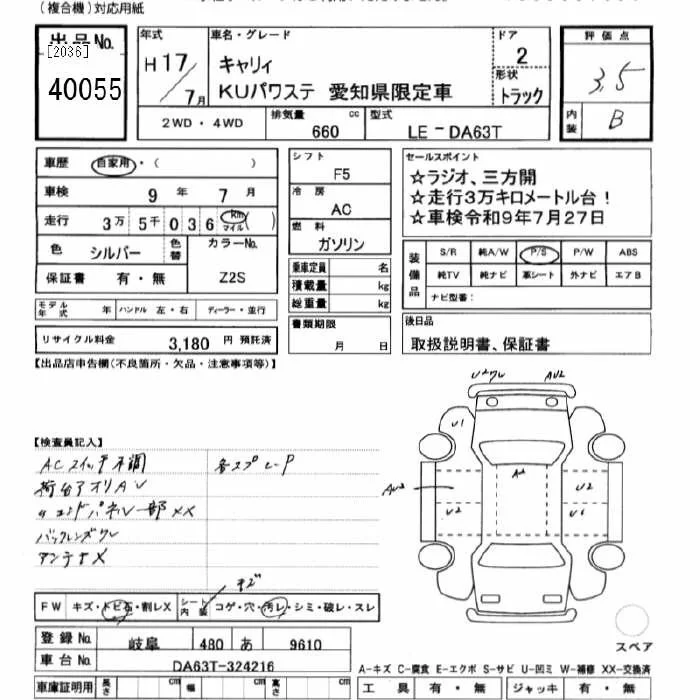 (複合機)対応用紙
出品No.
[2036]
40055
年式
H17/7月
車名・グレード
キャリィ
KUパワステ 愛知県限定車
ドア
2
形状
トラック
評価点
3.5
内装
B
2WD・4WD
排気量
660
cc
型式
LE-DA63T
車歴 自家用・( )
車検 9年 7月
走行 3万 5千 0 3 6 Km マイル( )
色 シルバー 色替 カラーNo.
保証書 有・無 Z2S
モデル年式 年 ハンドル 左・右 ディーラー・並行
リサイクル料金 3,180 円 預託済
シフト
F5
冷房
AC
燃料
ガソリン
乗車定員 名
積載量 kg
総重量 kg
書類期限
月 日
セールスポイント
☆ラジオ、三方開
☆走行3万キロメートル台!
☆車検令和9年7月27日
装備品
S/R 純A/W P/S P/W ABS
純TV 純ナビ 革シート 外ナビ エアB
ナビ型番:
後日品
取扱説明書、保証書
【出品店申告欄(不良箇所・欠品・注意事項等)】
【検査員記入】
ACスイッチ不調
各スプレーP
荷台アオリAU
〃エンドパネル一部XX
バックレンズワレ
アンテナX
キズ
FW キズ・トビ石・割レX シート内装 コゲ・穴・汚レ・シミ・破レ・スレ
登録No. 岐阜 480 あ 9610
車台No. DA63T-324216
車庫証明用 長さ cm 幅 cm 高さ cm
AU2
U1
A2
U2
U2
U1
スペア
A-キズ C-腐食 E-エクボ S-サビ U-凹ミ W-補修 XX-交換済
工具 有・無 ジャッキ 有・無